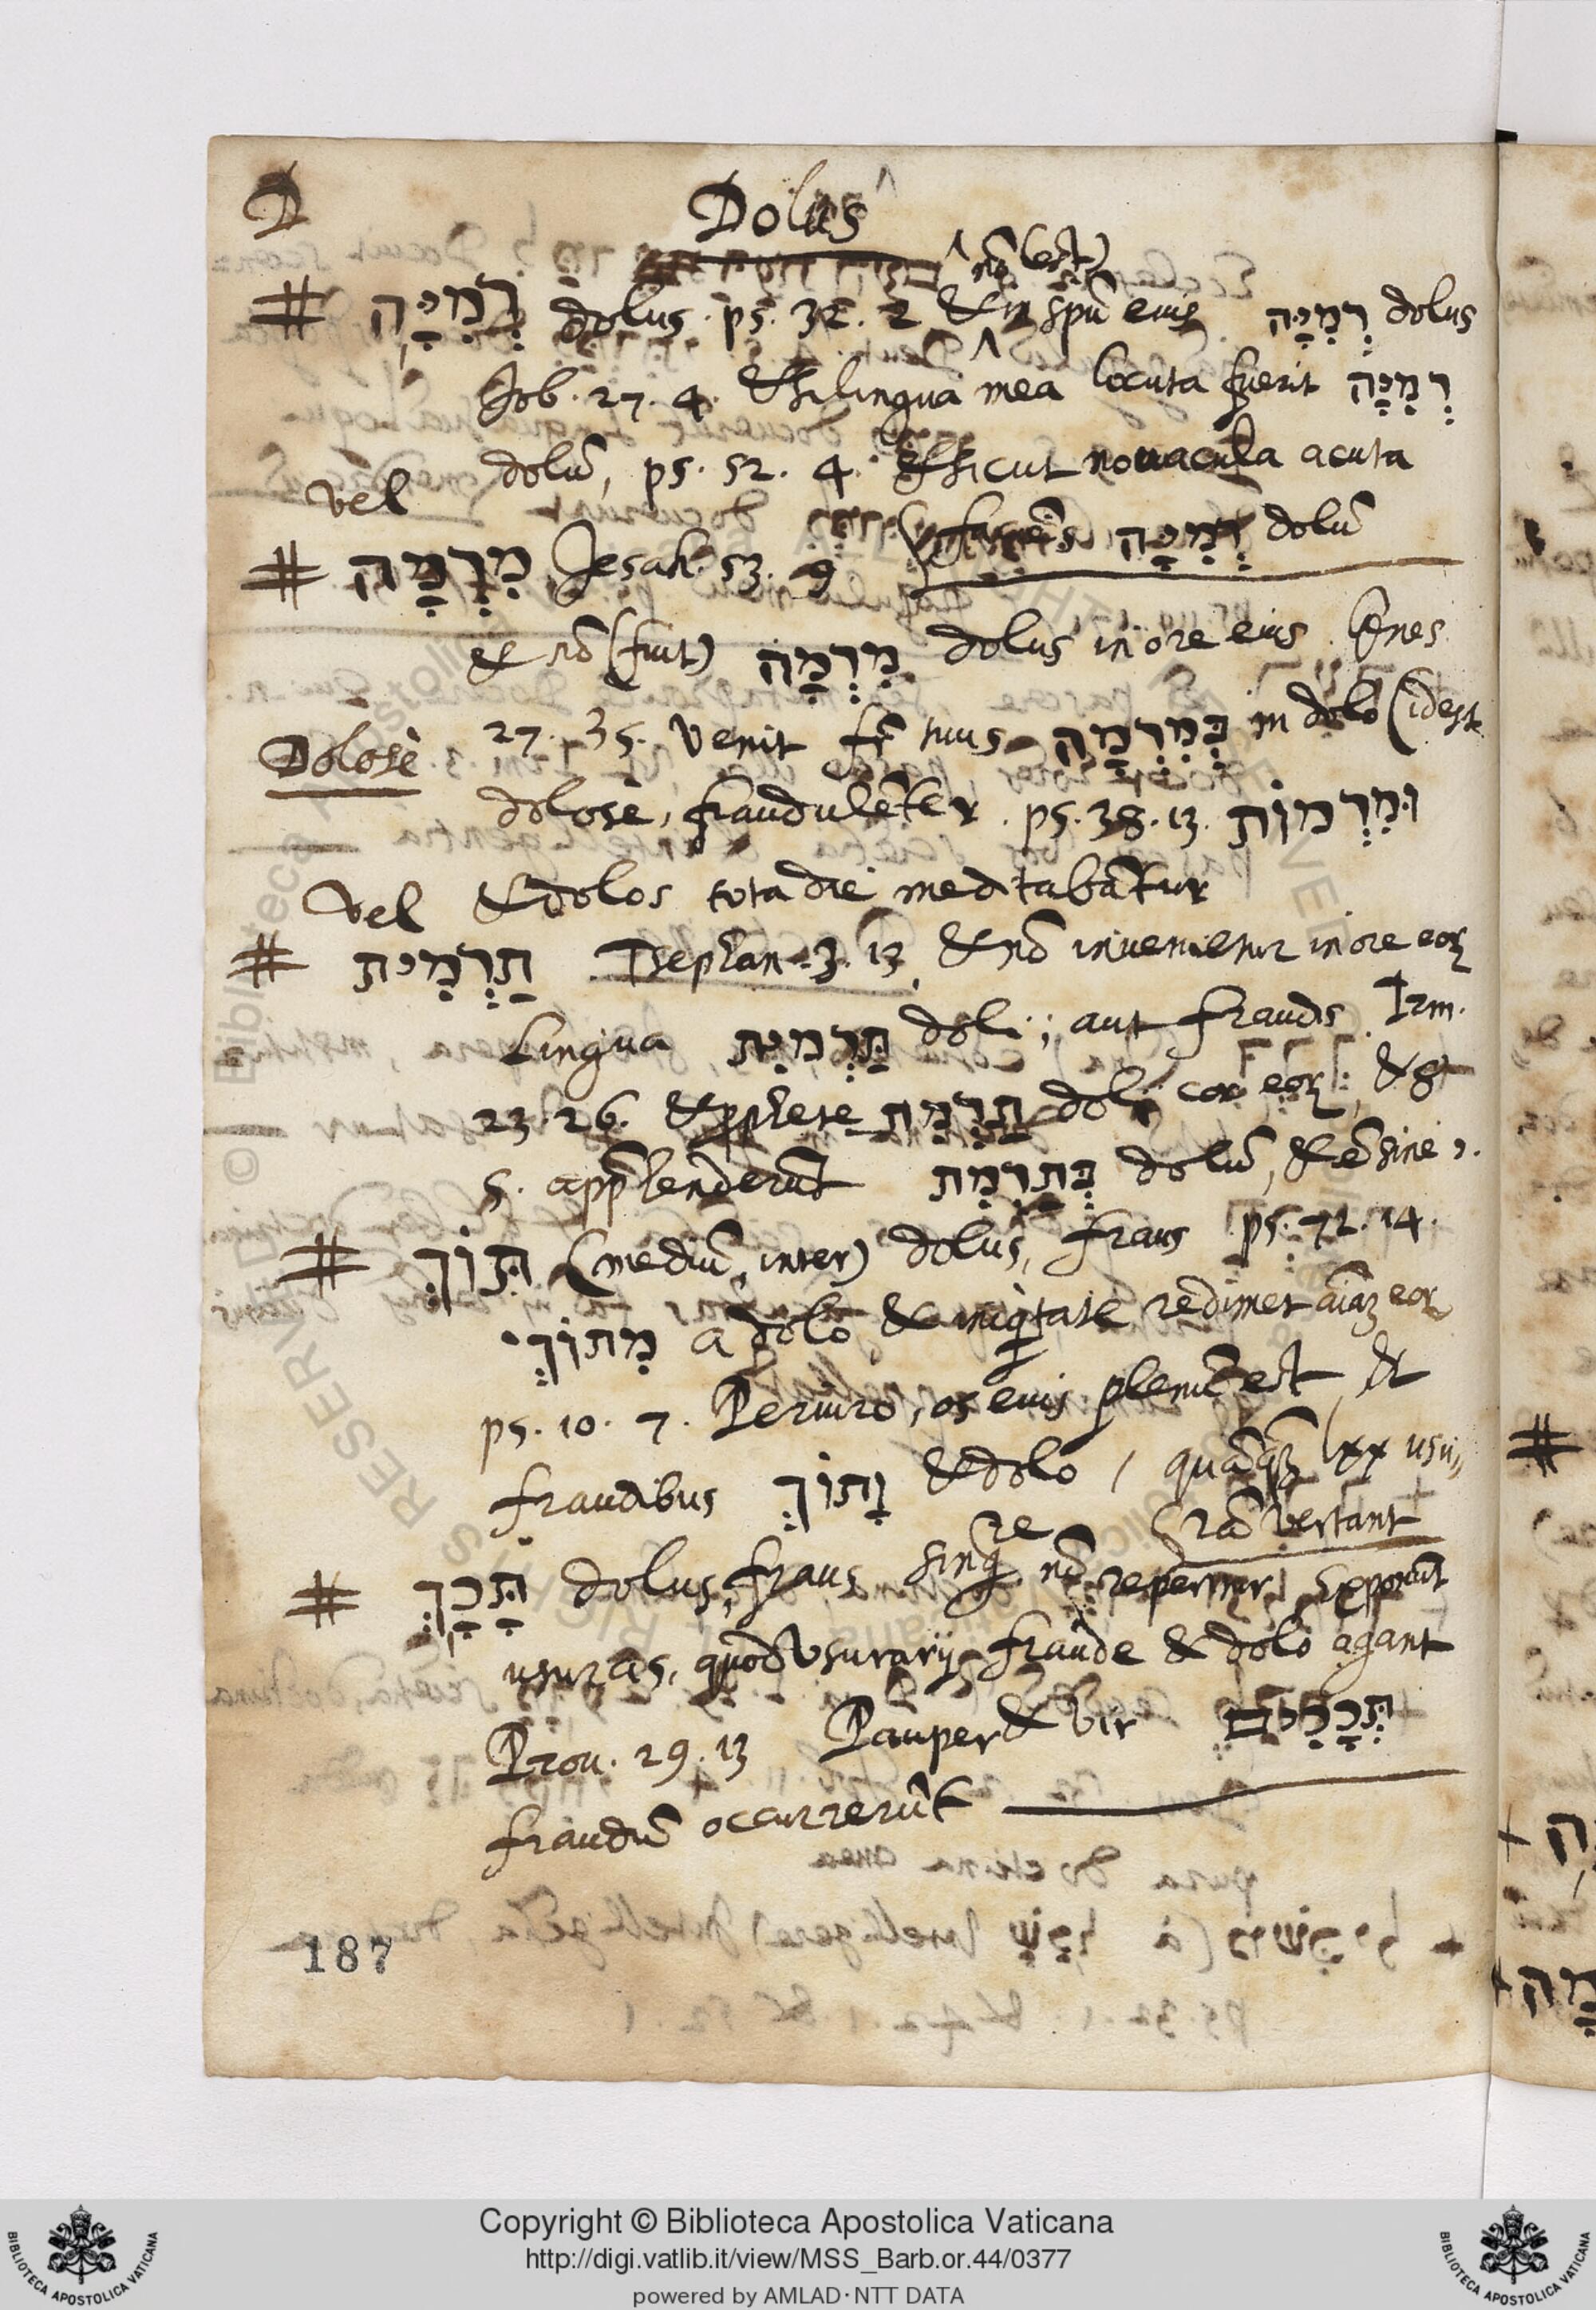 D
Dolus
nō (est)
# רְמִיָּה dolus. ps. 32. 2 & in spū eius רְמִיָּה dolus
Job. 27. 4. & si lingua mea locuta fuerit רְמִיָּה
dolū, ps. 52. 4. & sicut novacula acuta
vel
faciēs רְמִיָּה dolū
# מִרְמָה Jesah. 53. 9
& nō (fuit) מִרְמָה dolus in ore eius. Genes.
27. 35. Venit fr̄ tuus בְּמִרְמָה in dolo (idest
Dolosè
dolosè, fraudulēter. ps. 38. 13. וּמִרְמוֹת
Vel & dolos tota die meditabātur
# תַרְמִית Tsephan. 3. 13, & nō invenietur in ore eoꝝ
Lingua תַּרְמִית doli; aut fraudis. Irm.
23. 26. & prophetę תַרְמִת doli cor eoꝝ, & 8
5. apprehenderūt בְּתַרְמִת dolū, & ē sine י.
# תּוֹךְ (mediū, inter) dolus, fraus ps. 72. 14.
מִתּוֹךְ a dolo & iniqtate redimet aīaꝫ eoꝝ
ps. 10. 7. Periuro, os eius plenū est, &
fraudibus וָתוֹךְ & dolo, quāqꝫ lxx usu
rā vertant
re
# תָּכָךְ dolus, fraus sing. nō reperitur, exponūt
usuras, quod Usurarij fraude & dolo agant
Prov. 29. 13 Pauper & vir תְּכָכִים
fraudū ocurrerūt
187
Copyright © Biblioteca Apostolica Vaticana
http://digi.vatlib.it/view/MSS_Barb.or.44/0377
powered by AMLAD·NTT DATA
BIBLIOTECA APOSTOLICA VATICANA
BIBLIOTECA APOSTOLICA VATICANA